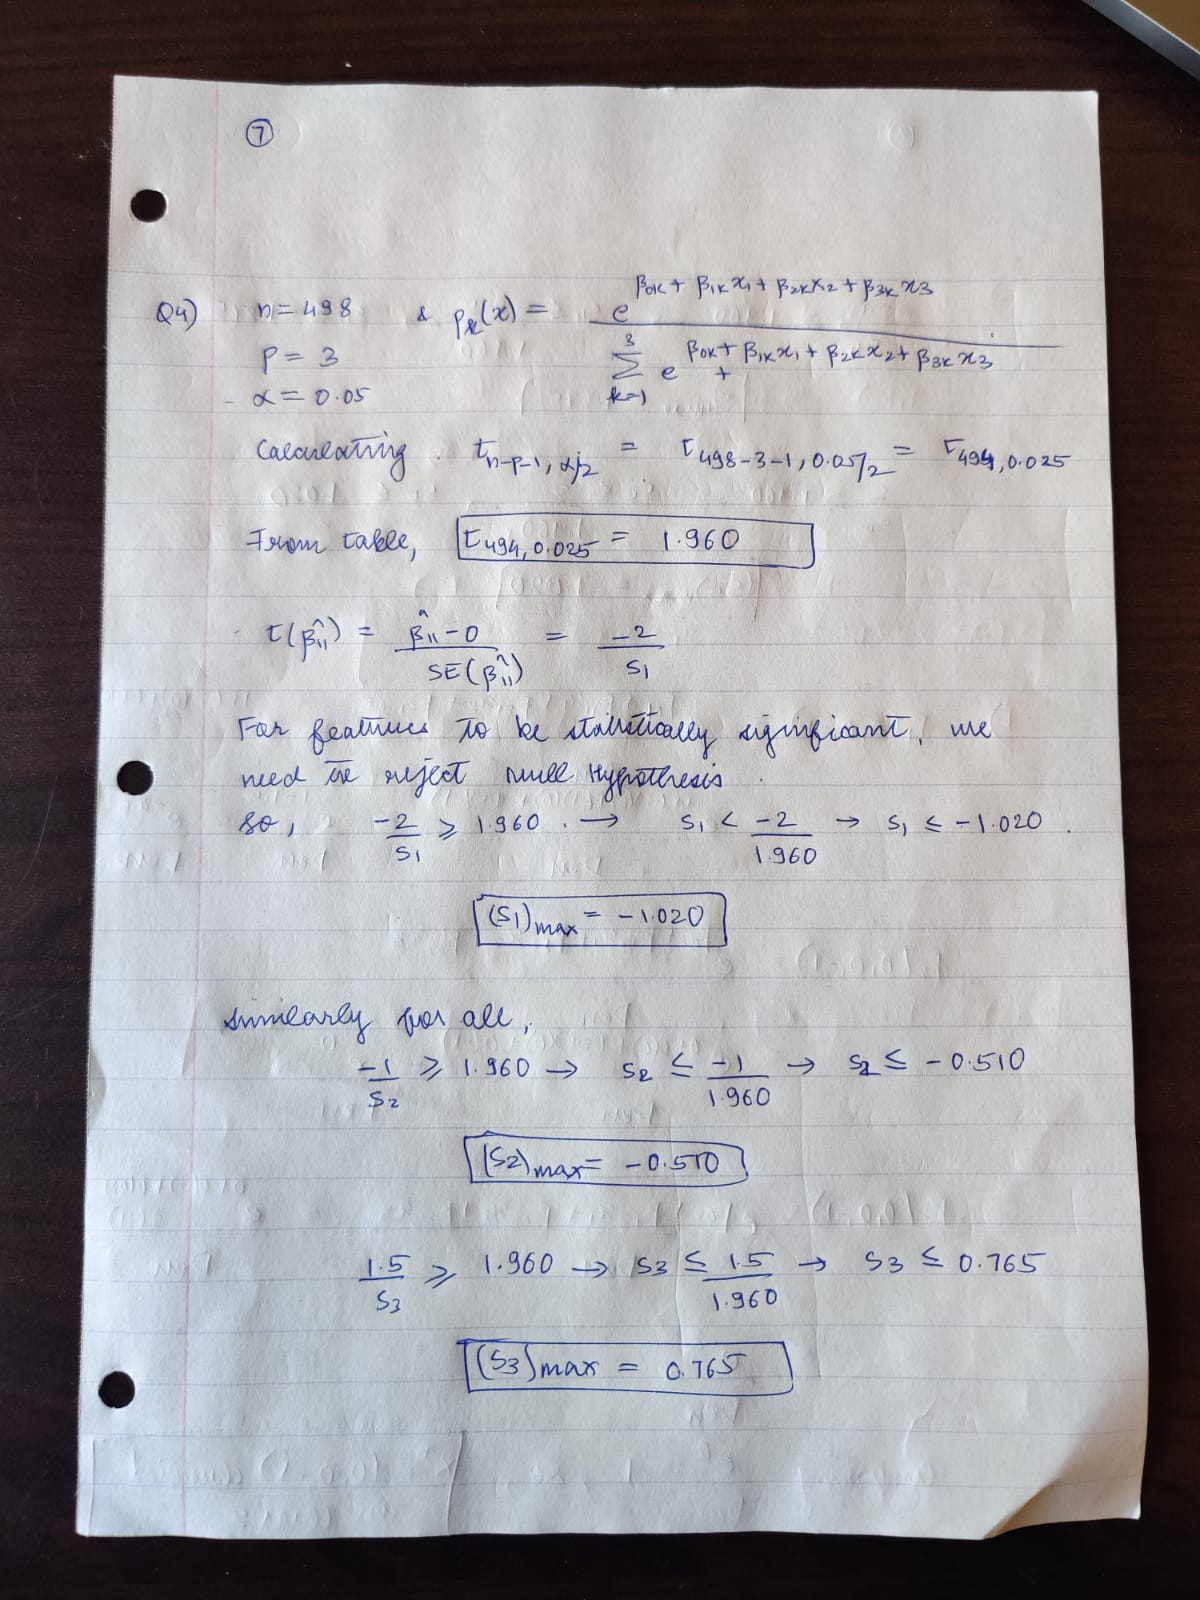 7
Q4) n = 498 & pk(x) = e^(β0k + β1k x1 + β2k x2 + β3k x3) / Σ_{k=1}^{3} e^(β0k + β1k x1 + β2k x2 + β3k x3)
p = 3
α = 0.05
Calculating. t_{n-p-1, α/2} = t_{498-3-1, 0.05/2} = t_{494, 0.025}
From table, t_{494, 0.025} = 1.960
t(β̂11) = (β̂11 - 0) / SE(β̂11) = -2 / S1
For features to be statistically significant, we
need to reject null Hypothesis.
so, -2/S1 ≥ 1.960 . → S1 < -2/1.960 → S1 ≤ -1.020 .
(S1)max = -1.020
Similarly for all,
-1/S2 ≥ 1.960 → S2 ≤ -1/1.960 → S2 ≤ -0.510
(S2)max = -0.510
1.5/S3 ≥ 1.960 → S3 ≤ 1.5/1.960 → S3 ≤ 0.765
(S3)max = 0.765